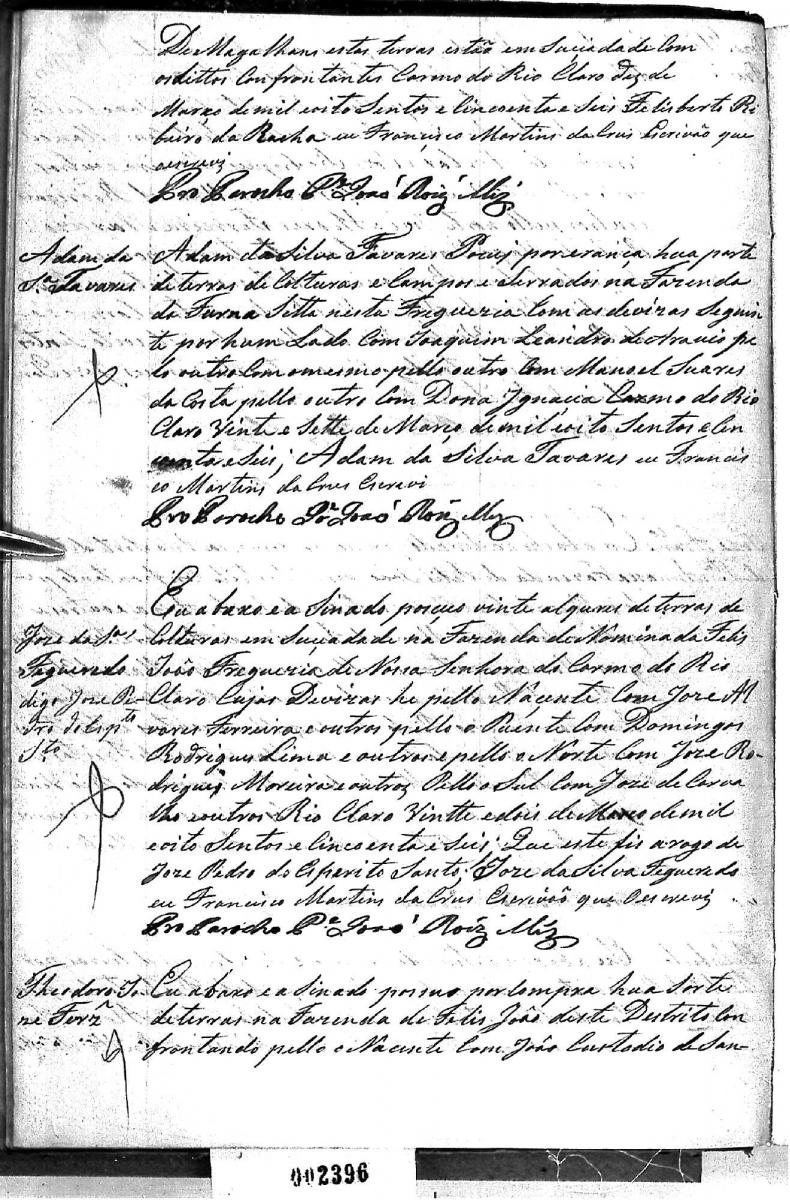 De Magalhans estas terras estão em Suciadade Com
os dittos Confrontantes Carmo do Rio Claro dez de
Março de mil eoito Sentos e Cincoenta e Seis Felisberto Ri
beiro da Racha eu Francisco Martins da Crus Escrivão que
oescrevi
Pro Parocho Pe João Roiz' Miz
Adam da
Sa Tavares
Adam da Silva Tavares Pocuj por erança hua parte
de terras de Colturas e Campos e Serrados na Fazenda
da Furna Sitta nesta Freguezia Com as devizas Seguin
te por hum Lado Com Joaquim Leandro de Araujo pe
lo outro Com omesmo pello outro Com Manoel Suares
da Costa pello outro Com Dona Ignacia Carmo do Rio
Claro Vinte e Sette de Março de mil eoito Sentos e Cin
coenta e Seis; Adam da Silva Tavares eu Francis
co Martins da Crus Escrevi
Pro Parocho Pe João Roiz Miz
Jose da Sa
Figueredo
digo Jose Pe-
dro do Espto
Sto
Eu abaxo e a Sinado poçuo vinte alqures de terras de
Colturas em Suçiadade na Fazenda de Nôminada Felis
João Freguezia de Nossa Senhora do Carmo do Rio
Claro Cujas Devizas he pello Naçente Com Joze Al
vares Ferreira e outros pello o Puente Com Domingos
Rodrigues Lima e outros e pello o Norte Com Józe Ro-
drigues Moreira e outros Pello o Sul Com Joze de Carva
lho e outros Rio Claro Vintte e dois de Março de mil
eoito Sentos e Cincoenta e Seis; Que este fis a rogo de
Joze Pedro do Esperito Santo; Joze da Silva Figueredo
eu Francisco Martins da Crus Escrivão que Oescrevi
Pro Parocho Pe João Roiz Miz
Theodoro Jo
ne Ferz
Eu abaxo e a Sinado possuo por Compra hua Sorte
de terras na Fazenda de Felis João deste Destrito Con
frontando pello o Nacente Com João Custodio de San-
002396